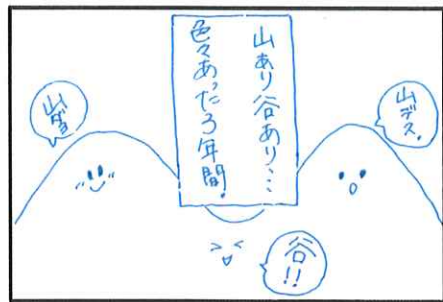 山あり谷あり…
色々あった3年間！
山デス。
山ダヨ
谷!!